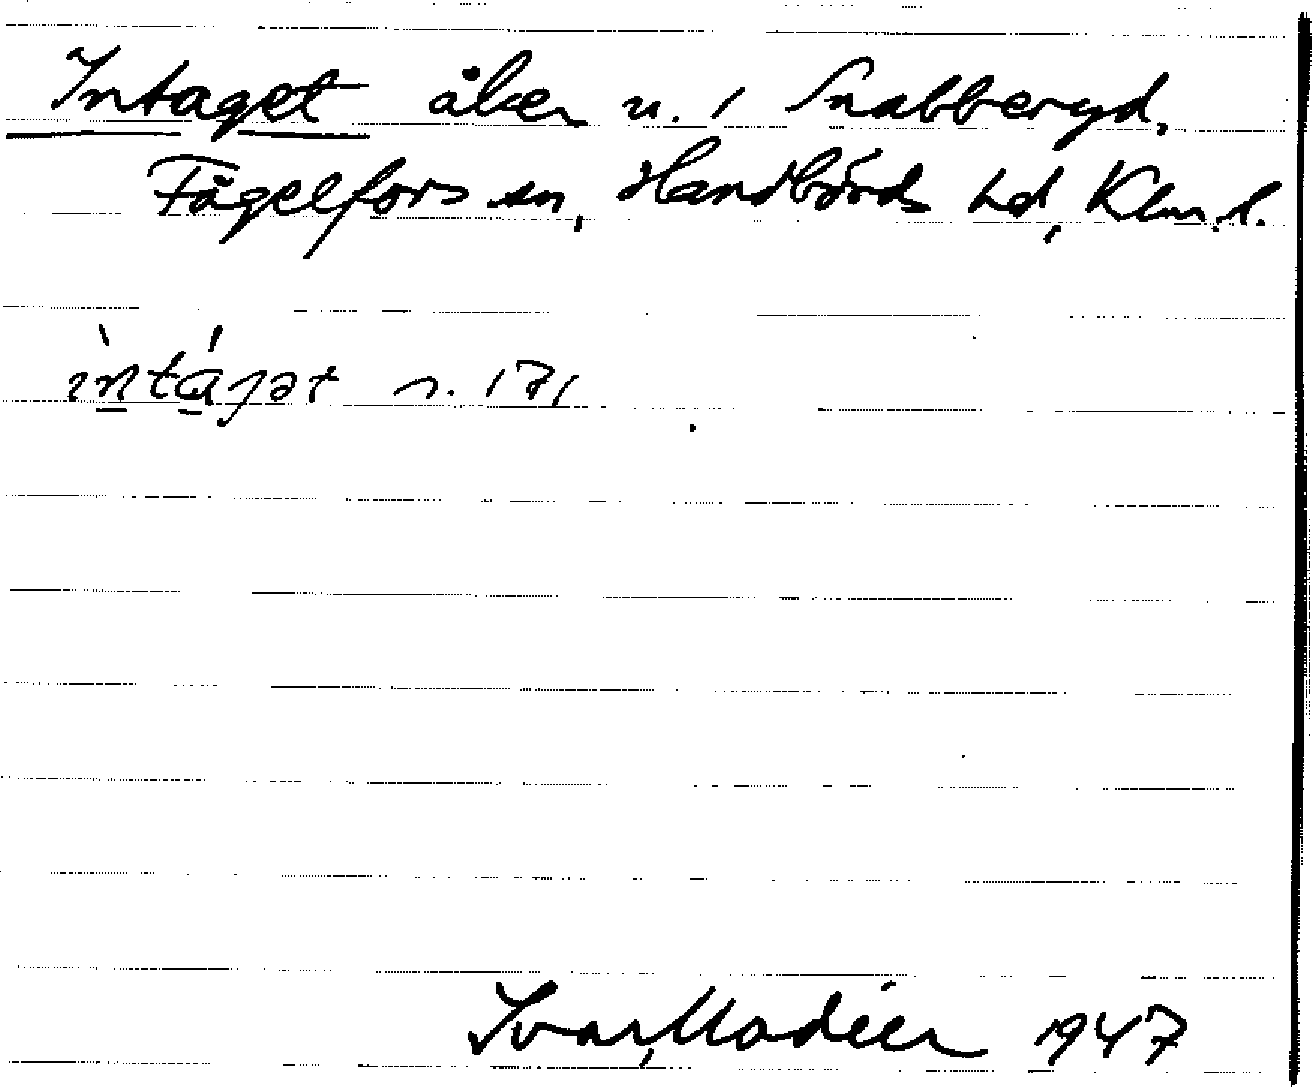 Intaget åker u. 1 Snabberyd,
Fågelfors sn, Handbörds hd, Klm. l.
ìntáget s. 171
Ivar Modéer 1947